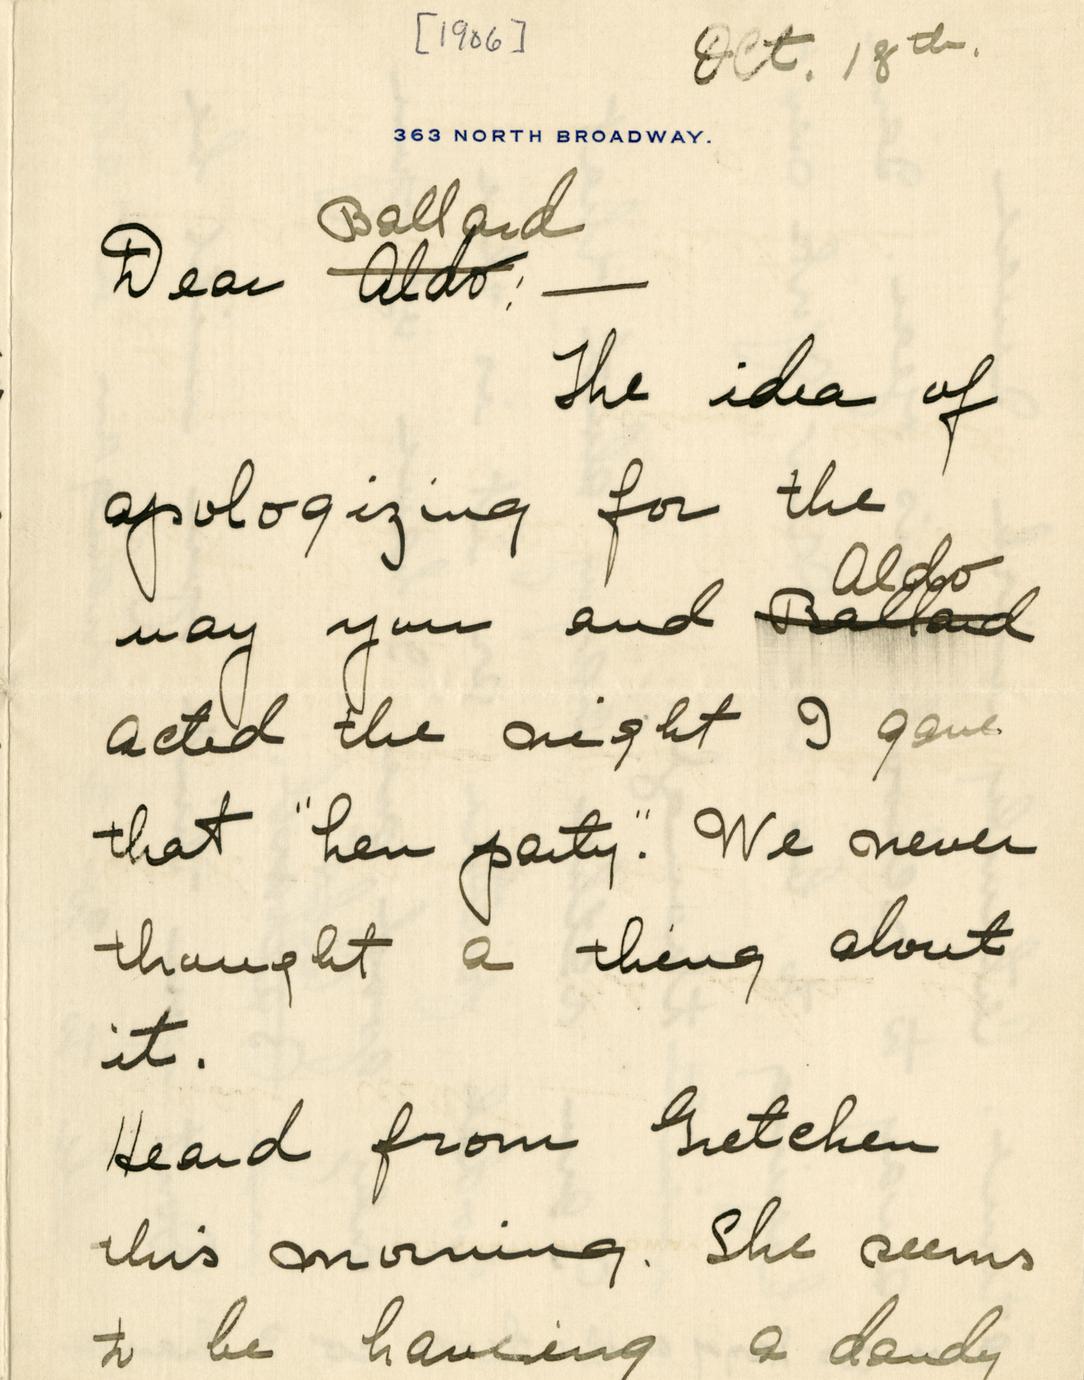 [1906]
Oct. 18th.
363 NORTH BROADWAY.
Ballard
Dear Aldo: —
The idea of
apologizing for the
Aldo
way you and Ballard
acted the night I gave
that "hen party". We never
thought a thing about
it.
Heard from Gretchen
this morning. She seems
to be haveing a dandy